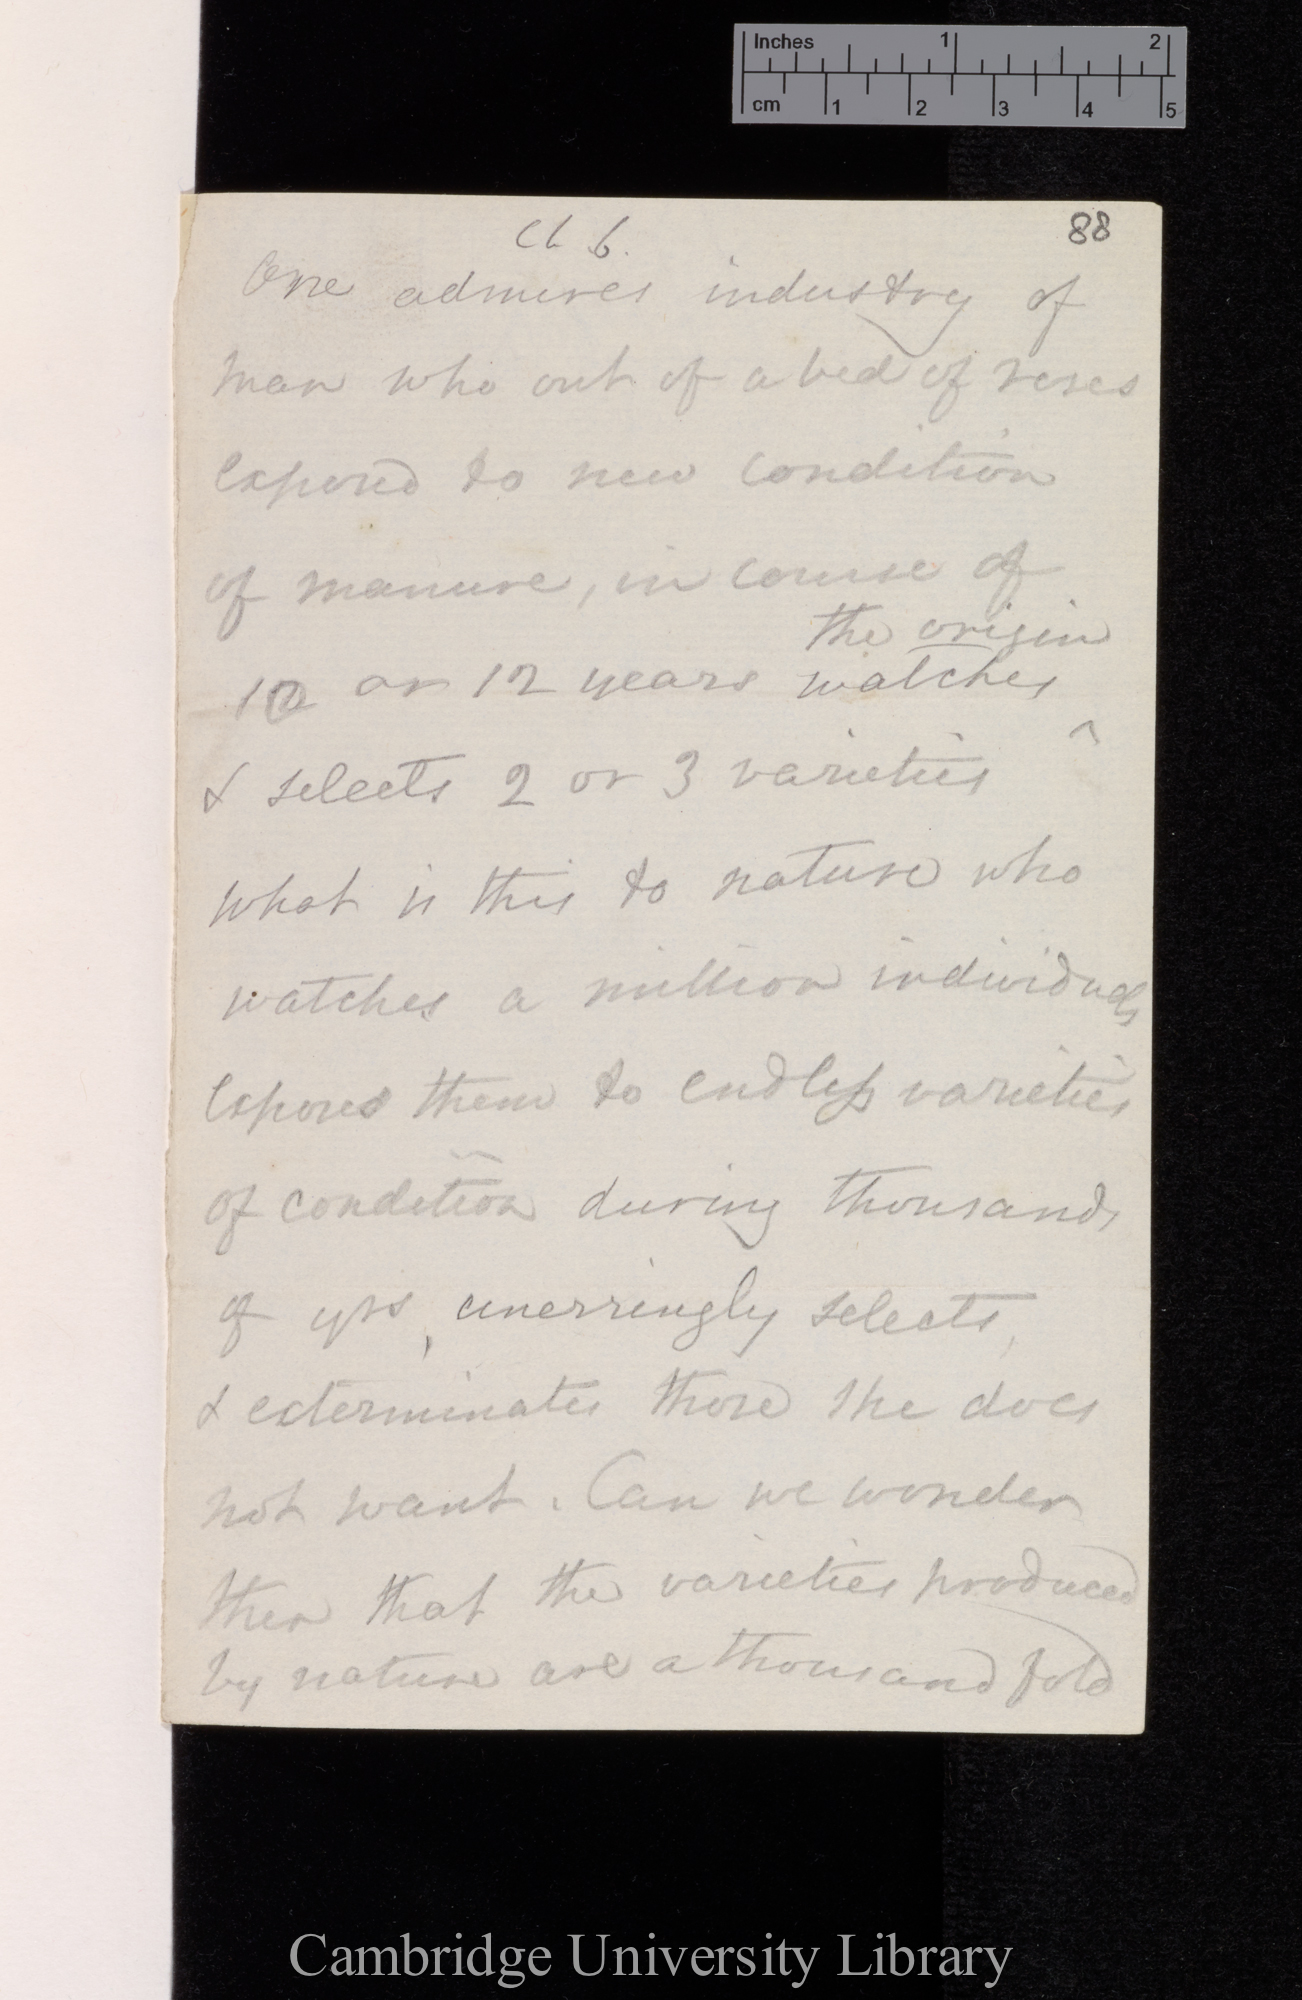 Inches 1 2
cm 1 2 3 4 5
Ch 6.
88
One admires industry of
man who out of a bed of roses
exposed to new condition
of manure, in course of
the origin
10 or 12 years watches
^
& selects 2 or 3 varieties
what is this to nature who
watches a million individuals
exposed them to endless varieties
of condition during thousands
of yrs, unerringly selects,
& exterminates those she does
not want. Can we wonder
then that the varieties produced
by nature are a thousand fold
Cambridge University Library